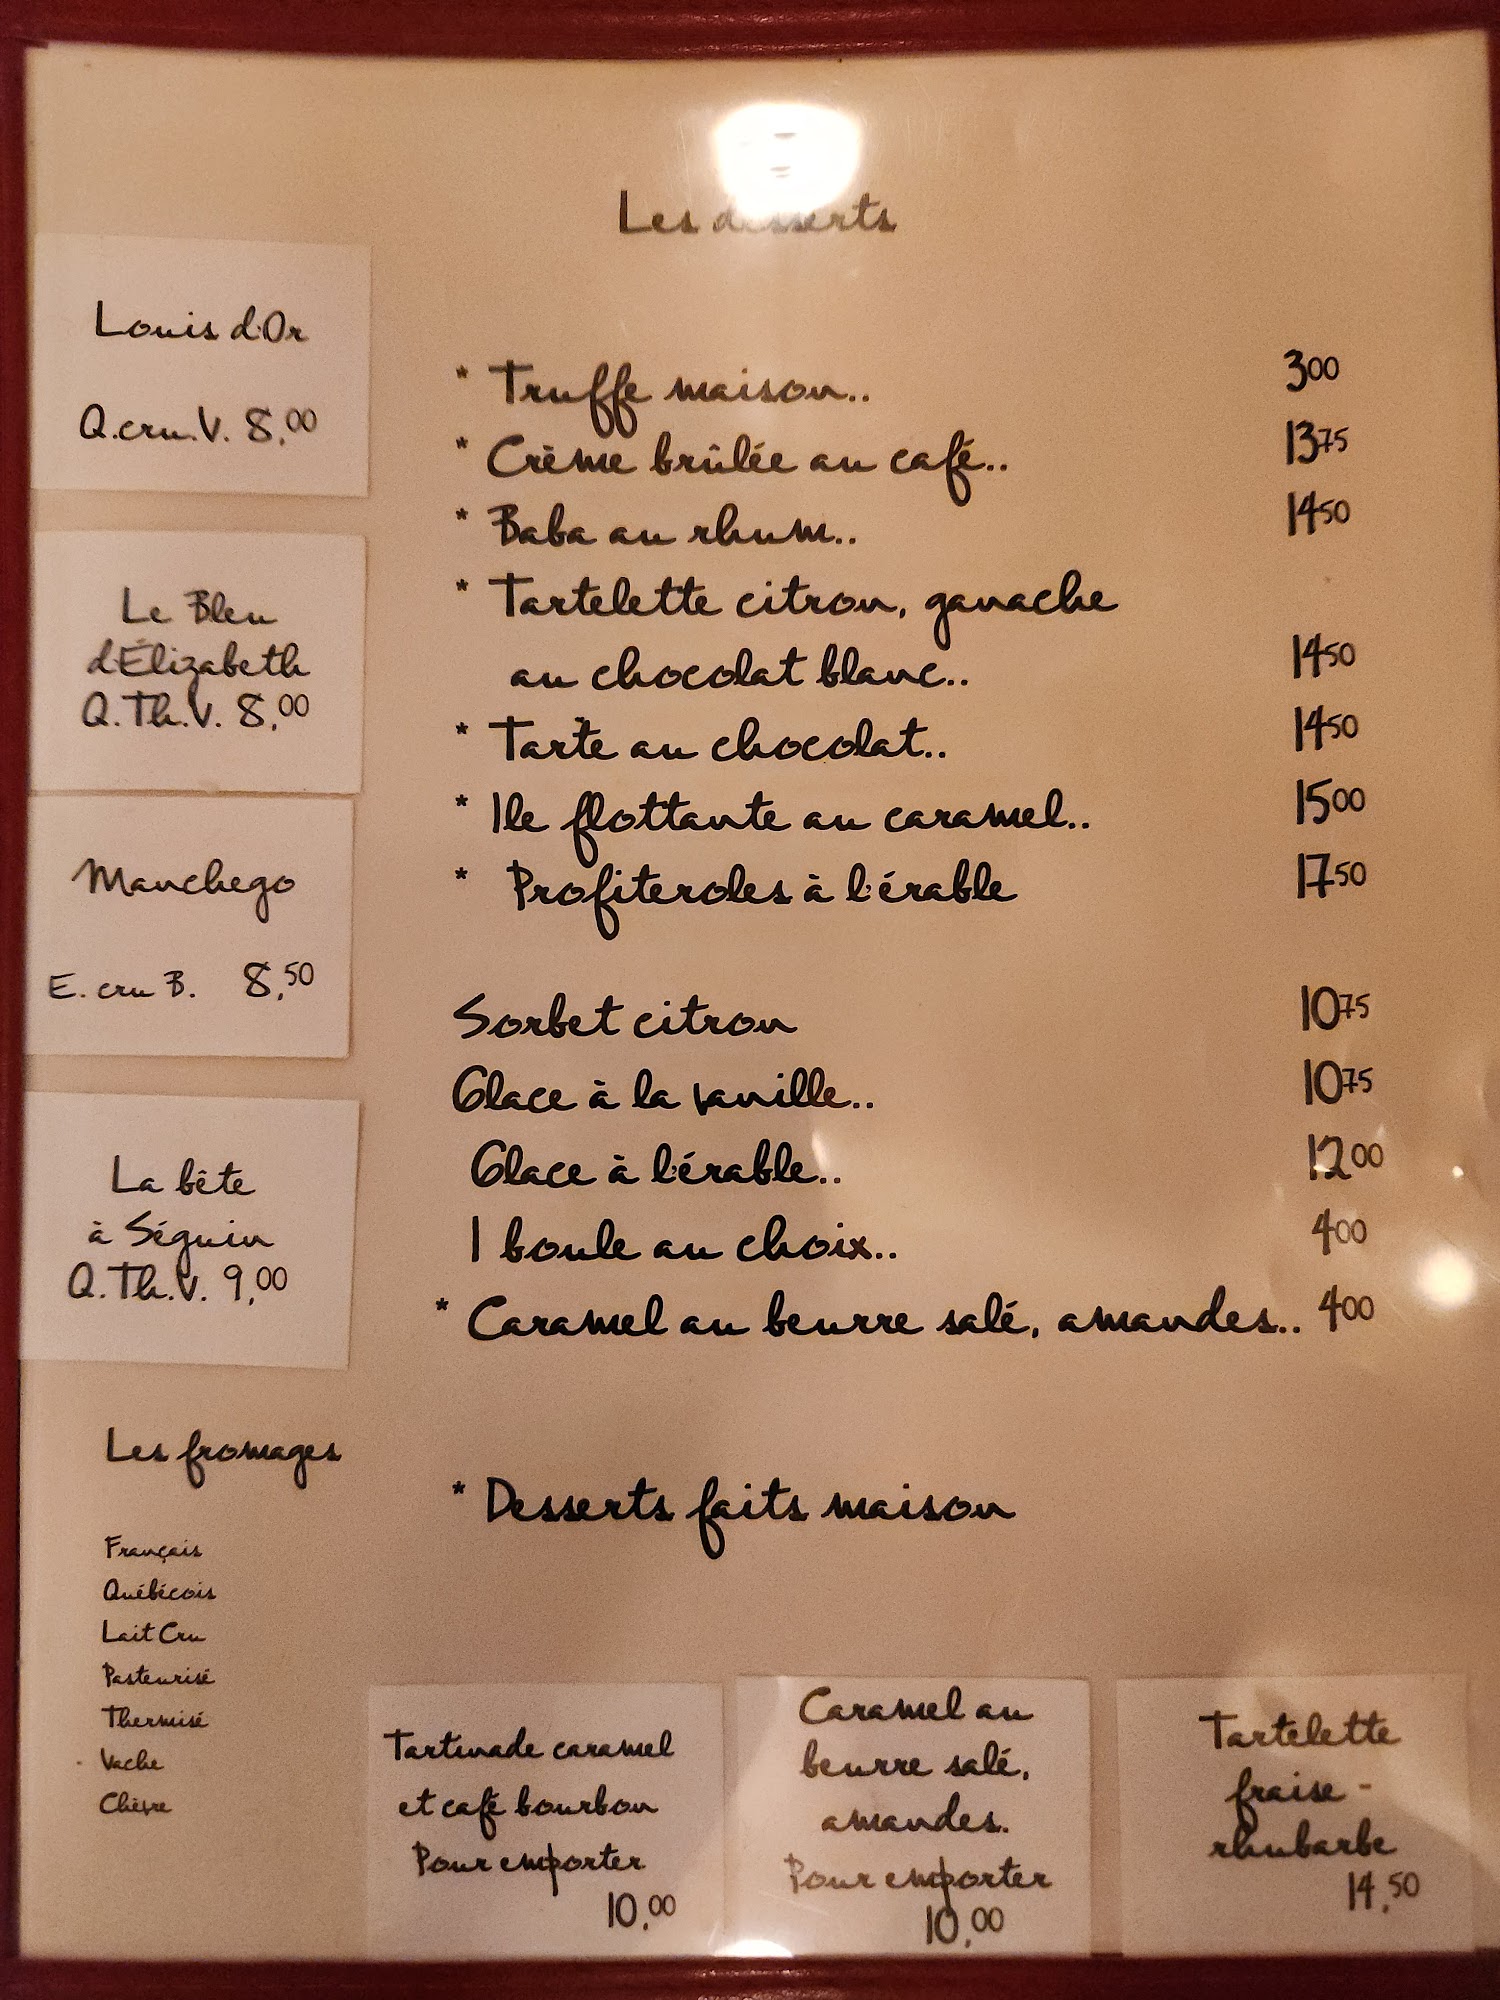 Les desserts
Louis d'Or
Q.cru.V. 8,00
Le Bleu
d'Élizabeth
Q.Th.V. 8,00
Manchego
E. cru B. 8,50
La bête
à Séguin
Q.Th.V. 9,00
Les fromages
Français
Québécois
Lait Cru
Pasteurisé
Thermisé
Vache
Chèvre
* Truffe maison.. 300
* Crème brûlée au café.. 1375
* Baba au rhum.. 1450
* Tartelette citron, ganache
au chocolat blanc.. 1450
* Tarte au chocolat.. 1450
* Ile flottante au caramel.. 1500
* Profiteroles à l'érable 1750
Sorbet citron 1075
Glace à la vanille.. 1075
Glace à l'érable.. 1200
1 boule au choix.. 400
* Caramel au beurre salé, amandes.. 400
* Desserts faits maison
Tartinade caramel
et café bourbon
Pour emporter
10,00
Caramel au
beurre salé,
amandes.
Pour emporter
10,00
Tartelette
fraise -
rhubarbe
14,50